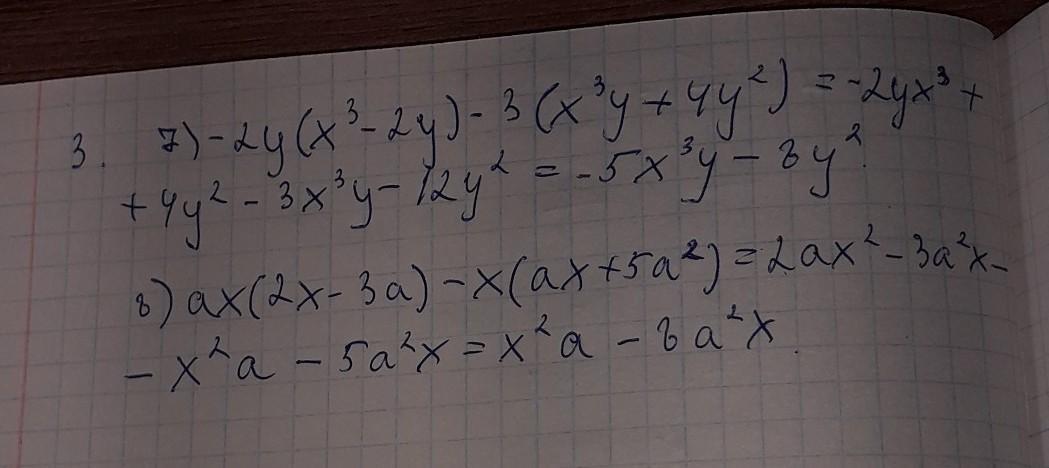 3. 7) -2y(x³-2y)-3(x³y+4y²)=-2yx³+
+4y²-3x³y-12y²=-5x³y-8y².
8) ax(2x-3a)-x(ax+5a²)=2ax²-3a²x-
-x²a-5a²x=x²a-8a²x.